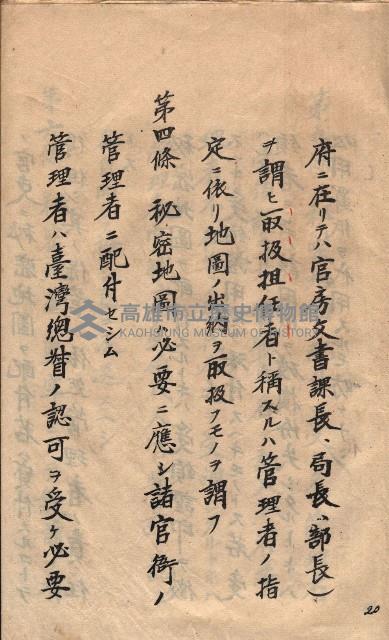 府ニ在リテハ官房文書課長、局長、部長)
ヲ謂ヒ取扱担任者ト稱スルハ管理者ノ指
定ニ依リ地圖ノ出納ヲ取扱フモノヲ謂フ
第四條 秘密地圖ハ必要ニ應シ諸官衙ノ
管理者ニ配付セシム
管理者ハ臺灣總督ノ認可ヲ受ケ必要
高雄市立歷史博物館
KAOHSIUNG MUSEUM OF HISTORY
20